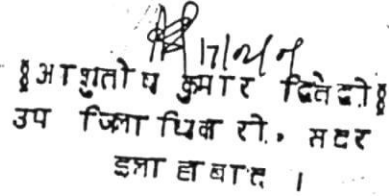 17/2/
§आशुतोष कुमार द्विवेदी§
उप जिलाधिकारी, सदर
इलाहाबाद ।